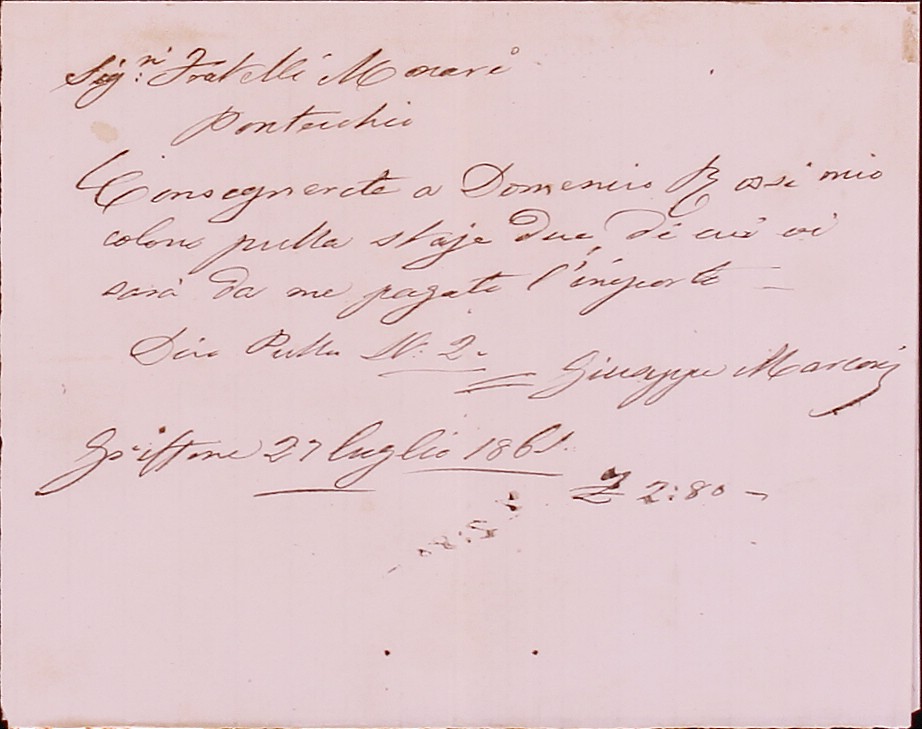 Sig.ri Fratelli Monari
Pontecchio
Consegnerete a Domenico Rossi mio
colono pulla staje due, di cui vi
sarà da me pagato l'importo —
Dico Pulla N. 2.
Giuseppe Marconi
Griffone 27 luglio 1861.
£ 2:80 —